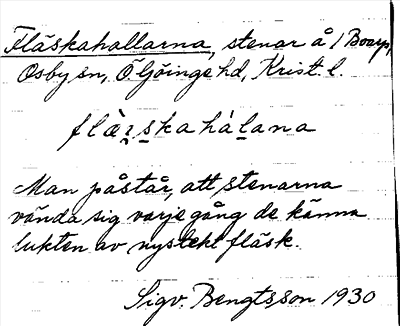 Fläskahallarna, stenar å 1 Boarp,
Osby sn, Ö. Göinge hd, Krist. l.
flæ̀r̥s̱kahàḻana
Man påstår, att stenarna
vända sig varje gång de känna
lukten av nystekt fläsk.
Sigv. Bengtsson 1930